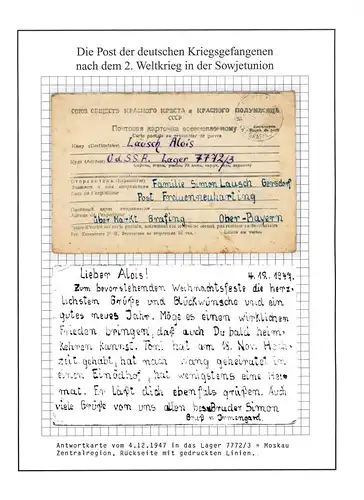 Die Post der deutschen Kriegsgefangenen
nach dem 2. Weltkrieg in der Sowjetunion
СОЮЗ ОБЩЕСТВ КРАСНОГО КРЕСТА и КРАСНОГО ПОЛУМЕСЯЦА
СССР
Почтовая карточка военнопленному
Carte postale au prisonnier de guerre
Кому (Destinataire) Lausch Alois
Куда (Adresse) U.d.S.S.R. Lager 7772/3
Отправитель (Expéditeur) Familie Simon Lausch Gersdorf
Post Frauenneuharting
über Markt Grafing Ober-Bayern
Lieber Alois! 4.12.1947.
Zum bevorstehenden Weihnachtsfeste die herz-
lichsten Grüße und Glückwünsche und ein
gutes neues Jahr. Möge es einen wirklichen
Frieden bringen, daß auch Du bald heim-
kehren kannst. Toni hat am 18. Nov. Hoch-
zeit gehabt, hat nach geheiratet in
einen Einödhof, hat wenigstens eine Hei-
mat. Er läßt dich ebenfalls grüßen. Auch
viele Grüße von uns allen bes. Bruder Simon
Gruß v. Irmengard.
Antwortkarte vom 4.12.1947 in das Lager 7772/3 = Moskau
Zentralregion. Rückseite mit gedruckten Linien.